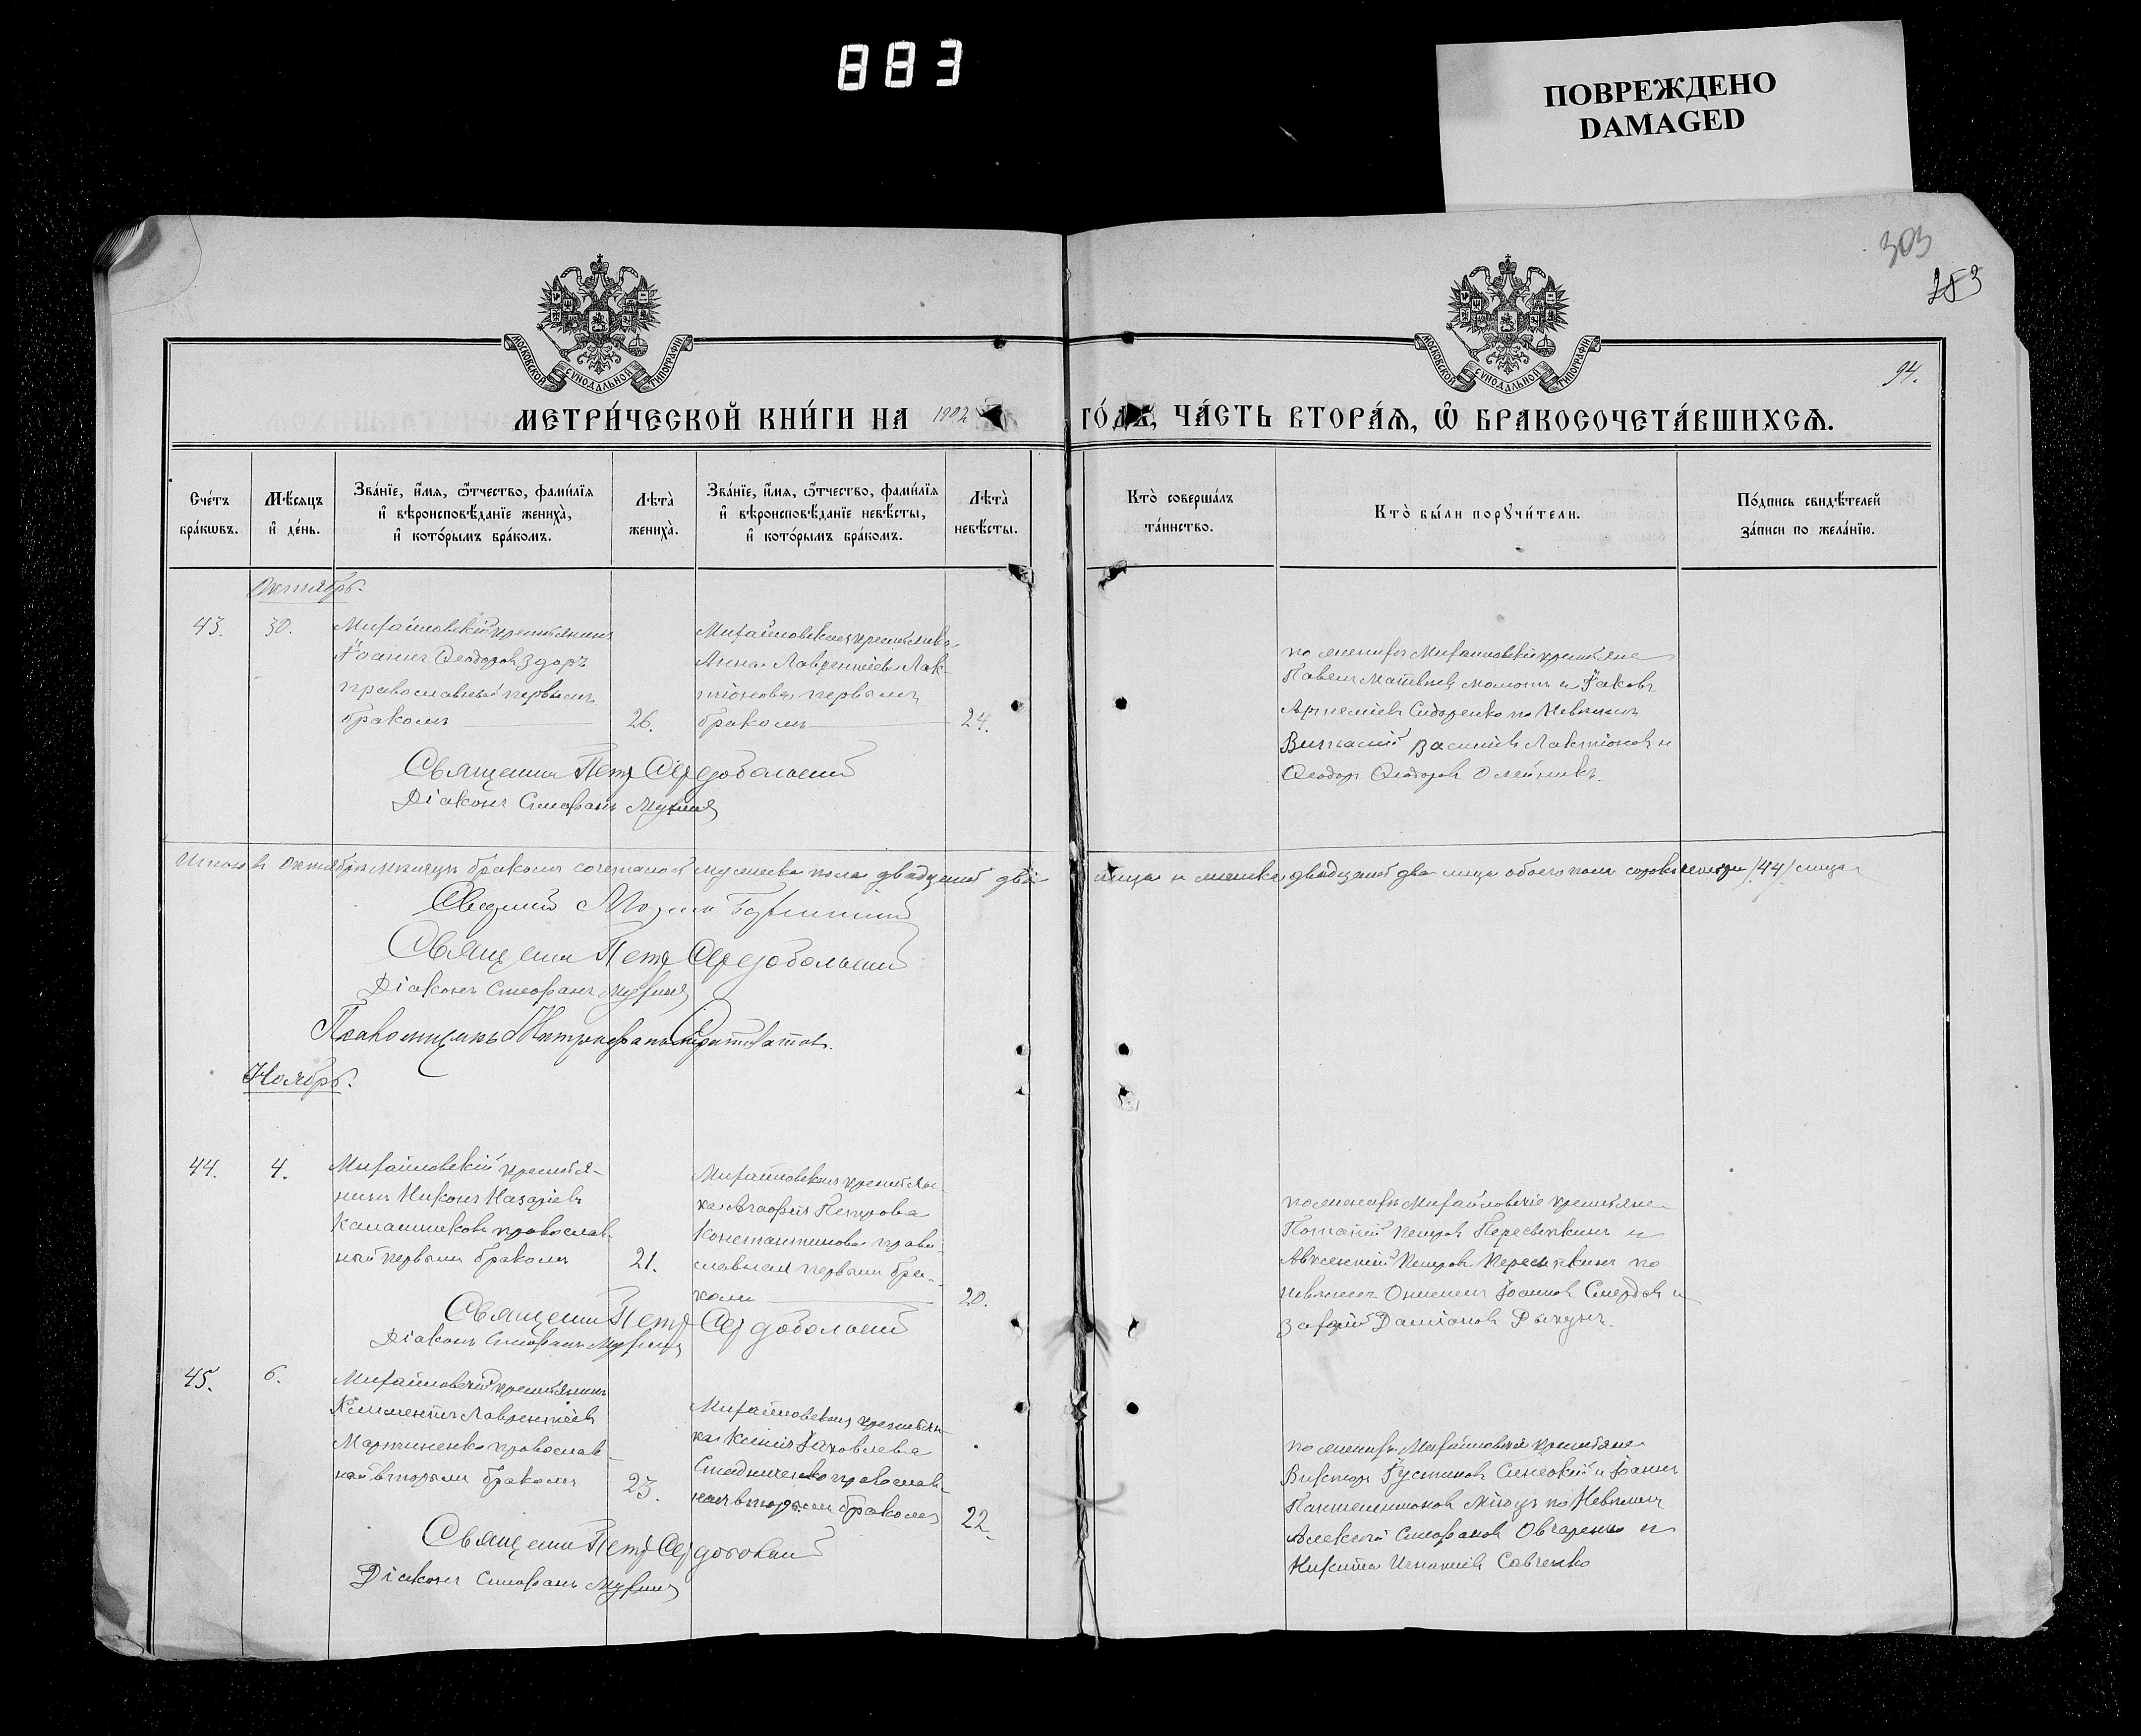 883
ПОВРЕЖДЕНО
DAMAGED
303
253
94.
МОСКОВСКОЙ СѴНОДАЛЬНОЙ ТИПОГРАФІИ
МОСКОВСКОЙ СѴНОДАЛЬНОЙ ТИПОГРАФІИ
МЕТРИ́ЧЕСКОЙ КНИ́ГИ НА 1902
ГО́ДЪ, ЧА́СТЬ ВТОРА́Ѧ, Ѡ БРАКОСОЧЕТА́ВШИХСѦ.
Сче́тъ
бра́кѡвъ.
Мѣ́сяцъ
и҆ де́нь.
Зва́нїе, и҆́мѧ, ѻ҆́тчество, фами́лїѧ
и҆ вѣроисповѣ́данїе жениха̀,
и҆ кото́рымъ бра́комъ.
Лѣта̀
жениха̀.
Зва́нїе, и҆́мѧ, ѻ҆́тчество, фами́лїѧ
и҆ вѣроисповѣ́данїе невѣ́сты,
и҆ кото́рымъ бра́комъ.
Лѣта̀
невѣ́сты.
Кто̀ соверша́лъ
та́инство.
Кто̀ бы́ли порꙋчи́тели.
По́дпись свидѣ́телей
за́писи по жела́нїю.
Октябрь.
43.
30.
Михайловскій крестьянинъ
Іоаннъ Ѳеодоровъ Здоръ
православный первымъ
бракомъ
26.
Михайловская крестьянка
Анна Лаврентіева Лак-
тіонова первымъ
бракомъ
24.
по женихѣ Михайловскіе крестьяне
Павелъ Матвѣевъ и Іаковъ
Артеміевъ Сидоренко по невѣстѣ
Виталій Василіевъ Лактіоновъ и
Ѳеодоръ Ѳеодоровъ Олейникъ.
Священникъ Петръ Сердобольскій
Діаконъ Стефанъ
Итого въ Октябрѣ мѣсяцѣ бракомъ сочеталось мужеска пола двадцать два
лица и женска двадцать два лица обоего пола сорокъ четыре /44/ лица
Священникъ Петръ Сердобольскій
Діаконъ Стефанъ
Псаломщикъ Митрофанъ
Ноябрь.
44.
4.
Михайловскій крестья-
нинъ Никонъ Назаріевъ
Калашниковъ православ-
ный первымъ бракомъ
21.
Михайловская крестьян-
ка Агафія Петрова
Константинова право-
славная первымъ бра-
комъ
20.
по женихѣ Михайловскіе крестьяне
Потапій Петровъ Пересыпкинъ и
Авксентій Петровъ Пересыпкинъ по
невѣстѣ Іоанновъ Смердовъ и
Захарій Даміановъ
Священникъ Петръ Сердобольскій
Діаконъ Стефанъ
45.
6.
Михайловскій крестьянинъ
Климентъ Лаврентіевъ
Мартиненко православ-
ный вторымъ бракомъ
23.
Михайловская крестьян-
ка Ксенія Іаковлева
Стадниченко православ-
ная вторымъ бракомъ
22.
по женихѣ Михайловскіе крестьяне
Викторъ Іустиновъ и Іоаннъ
Пантелеимоновъ по невѣстѣ
Алексѣй Стефановъ Овчаренко и
Никита Игнатіевъ Савченко
Священникъ Петръ Сердобольскій
Діаконъ Стефанъ